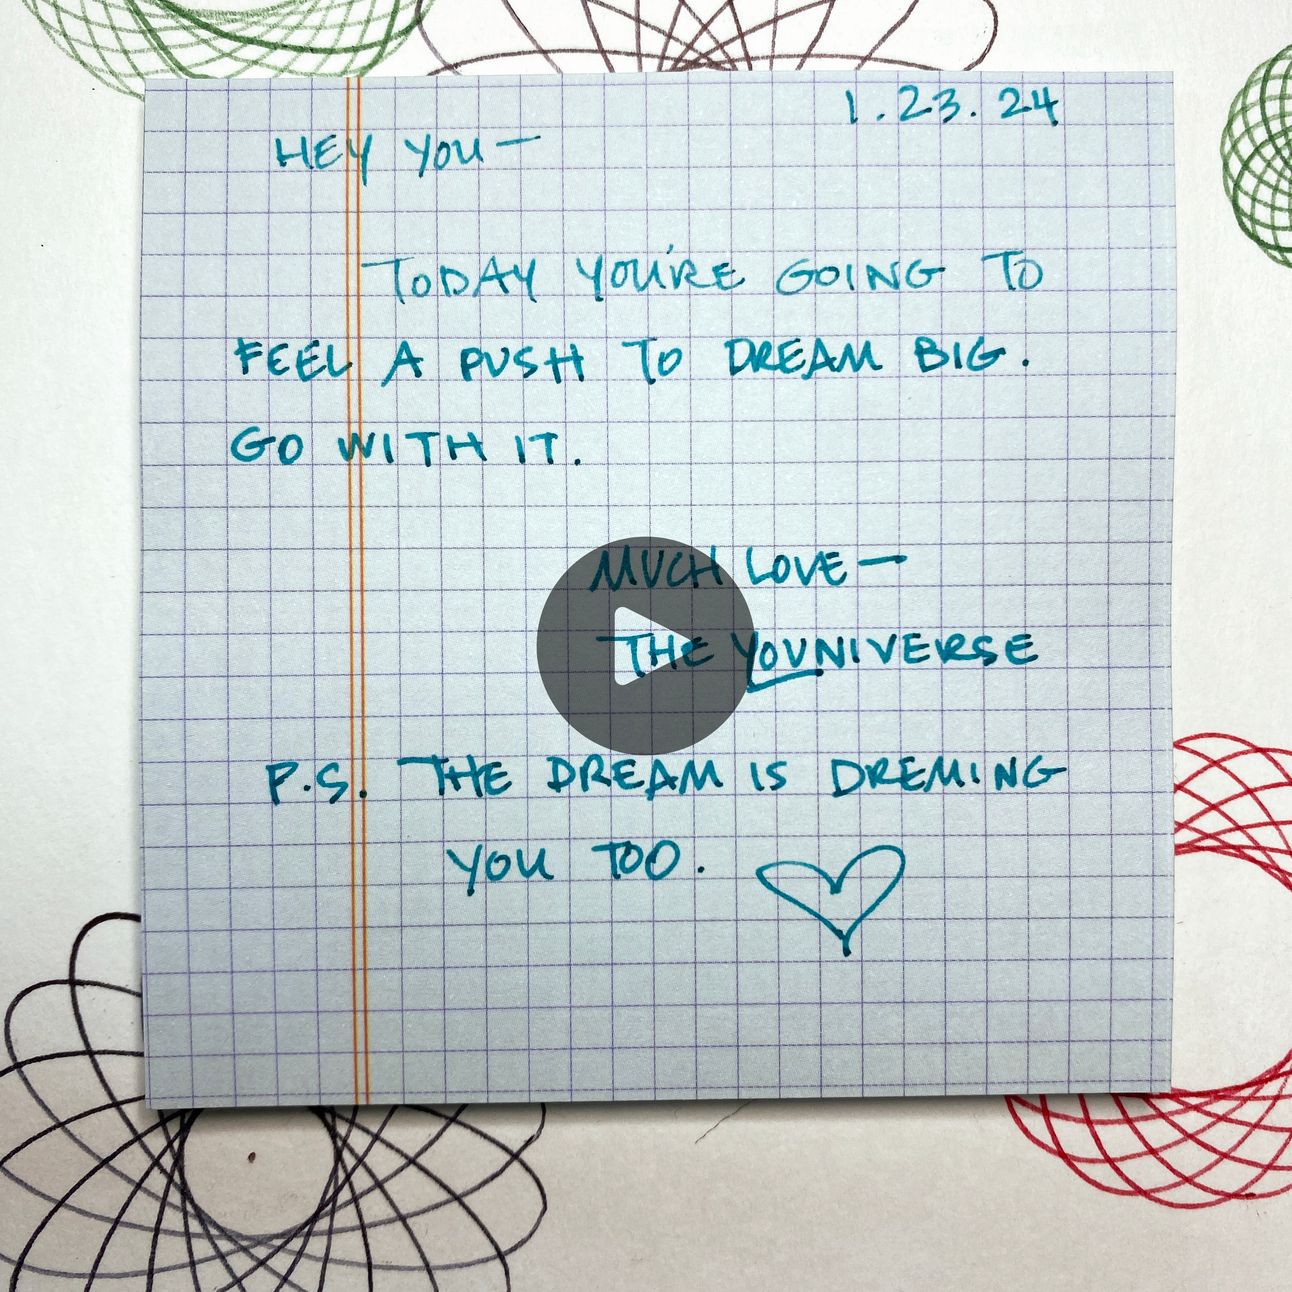 1.23.24
HEY YOU—
TODAY YOU'RE GOING TO
FEEL A PUSH TO DREAM BIG.
GO WITH IT.
MUCH LOVE—
THE YOUNIVERSE
P.S. THE DREAM IS DREMING
YOU TOO.